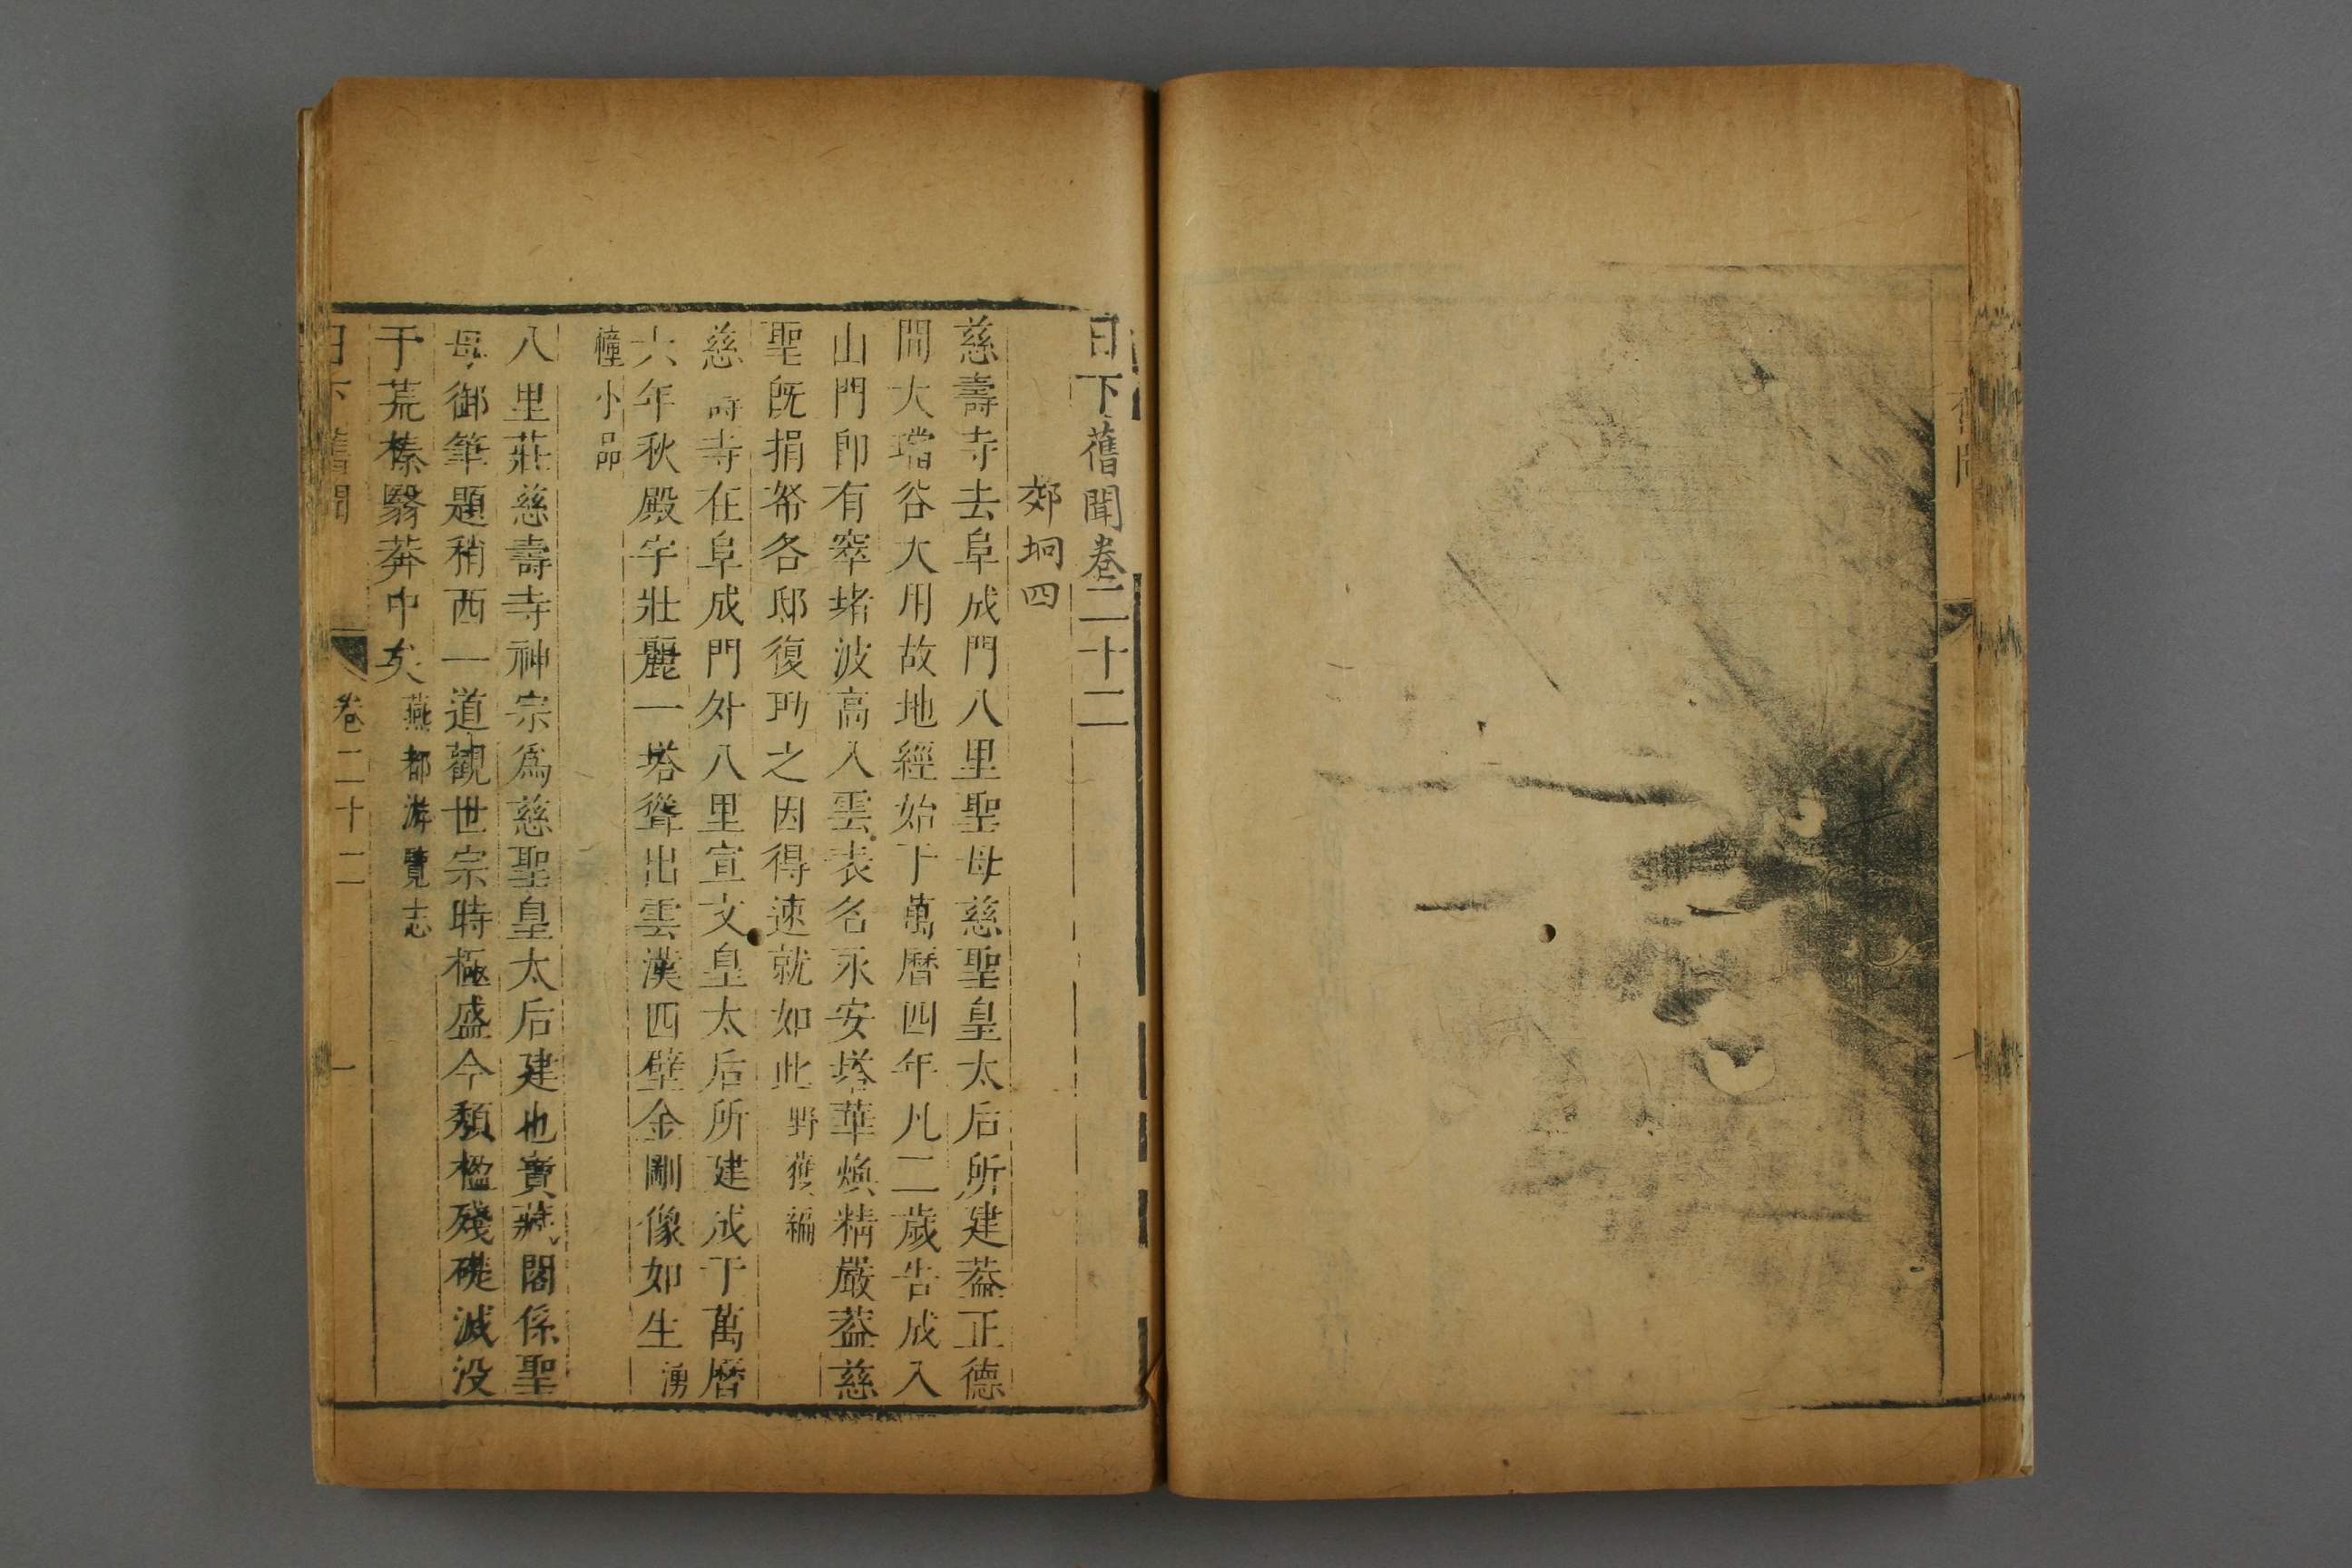 日下舊聞卷二十二
郊坰四
慈壽寺去阜成門八里聖母慈聖皇太后所建葢正德
間大璫谷大用故地經始于萬曆四年凡二歲告成入
山門卽有窣堵波高入雲表名永安塔華煥精嚴葢慈
聖旣捐帑各邸復助之因得速就如此野獲編
慈壽寺在阜成門外八里宣文皇太后所建成于萬曆
六年秋殿宇壯麗一塔聳出雲漢四壁金剛像如生湧
幢小品
八里莊慈壽寺神宗爲慈聖皇太后建也寶藏閣係聖
母御筆題稍西一道觀世宗時極盛今頹楹殘礎滅没
于荒榛翳莽中矣燕都游覽志
日下舊聞 卷二十二 一